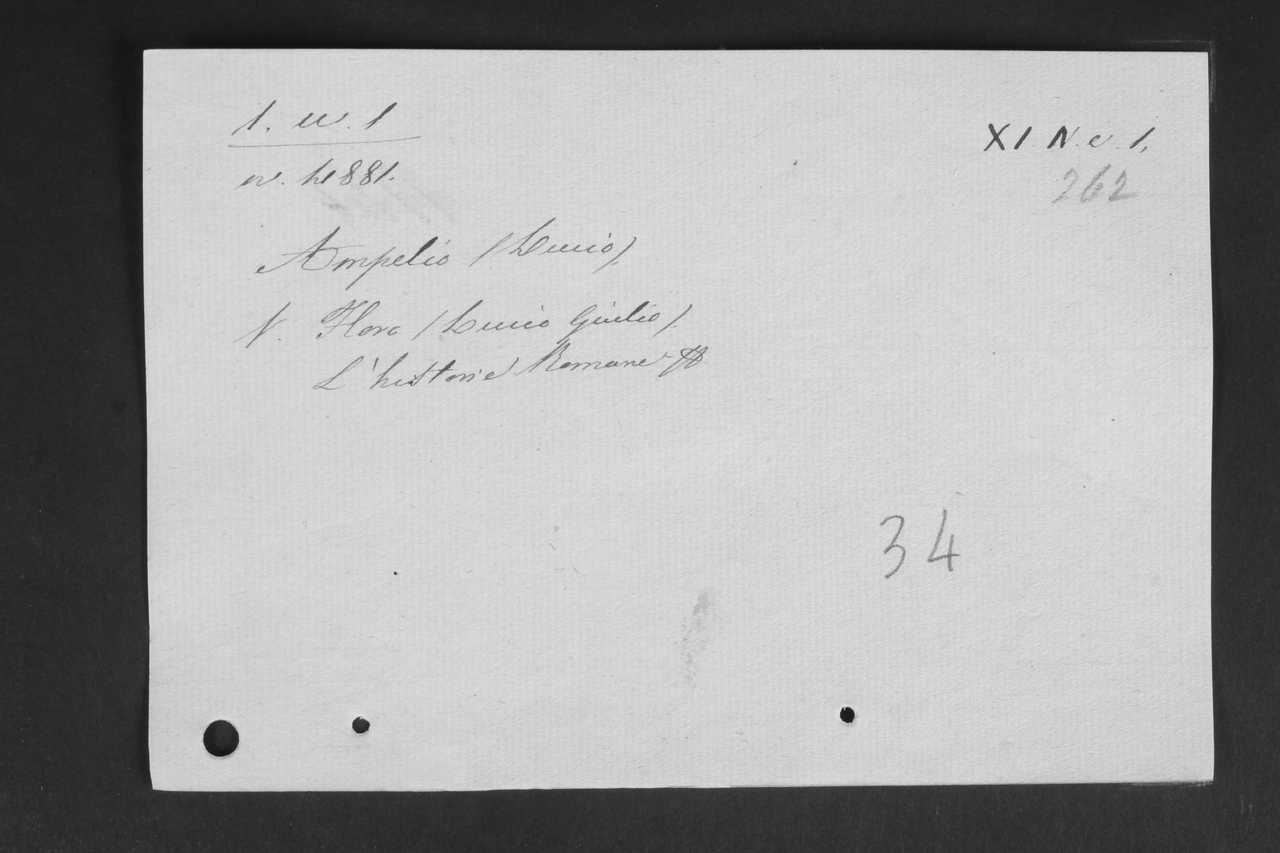 XI N. e. 1,
262
Ampelio (Lucio).
V. Floro (Lucio Giulio).
L'historie Romane
34